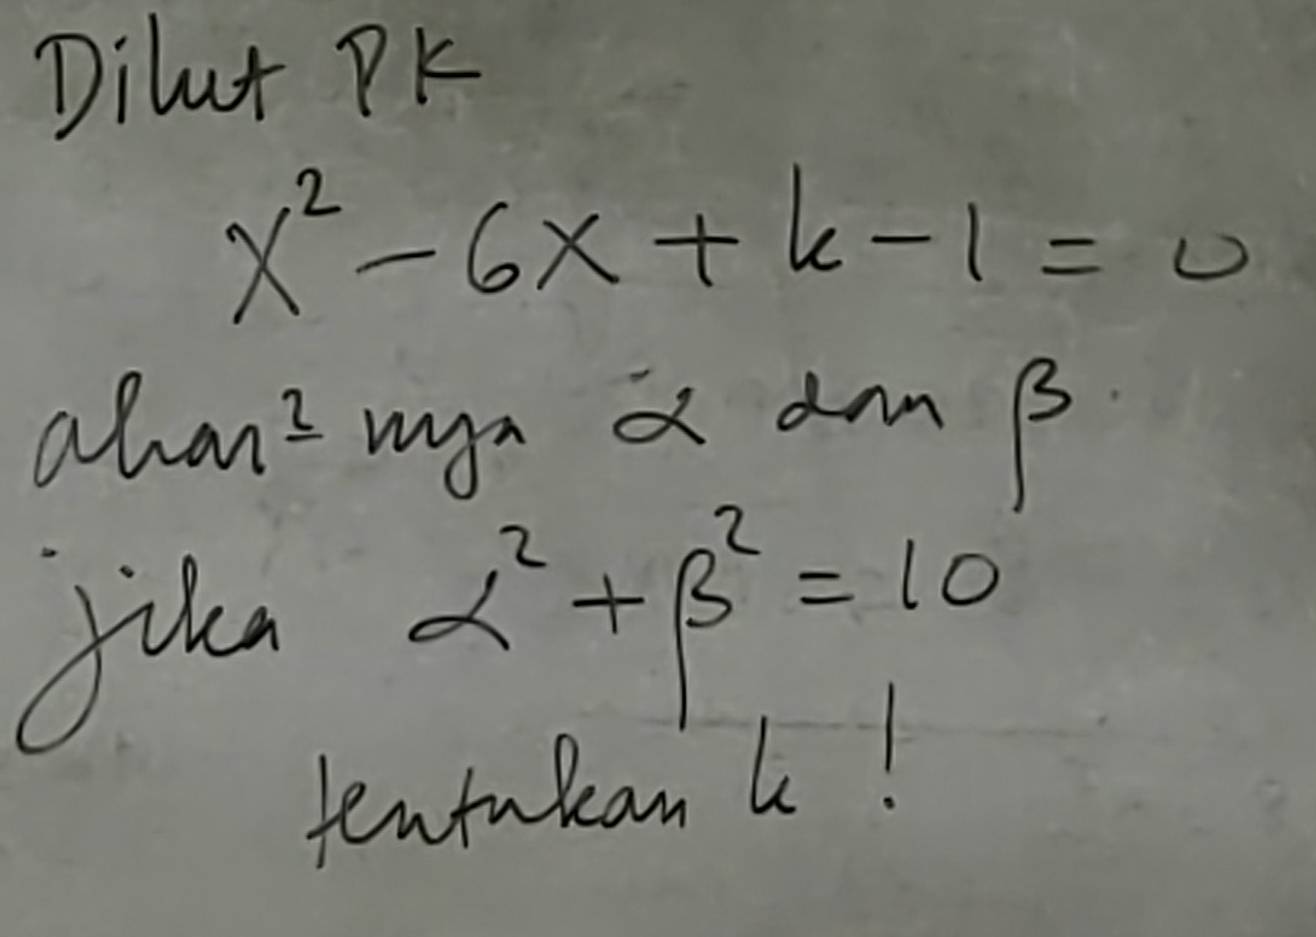 Diket PK
x² - 6x + k - 1 = 0
akar² nya α dan β.
jika α² + β² = 10
tentukan k !